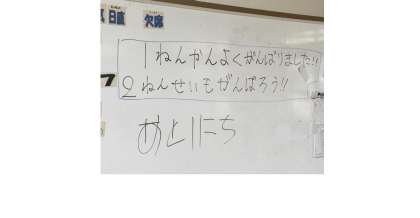 日直 欠席
1ねんかんよくがんばりました!!
2ねんせいもがんばろう!!
あと1にち